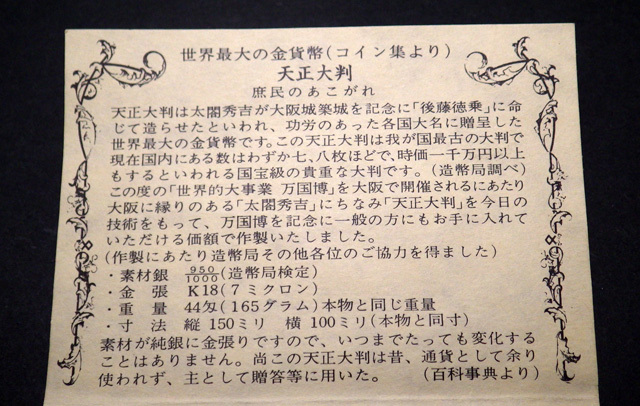 世界最大の金貨幣(コイン集より)
天正大判
庶民のあこがれ
天正大判は太閤秀吉が大阪城築城を記念に「後藤徳乗」に命
じて造らせたといわれ、功労のあった各国大名に贈呈した
世界最大の金貨幣です。この天正大判は我が国最古の大判で
現在国内にある数はわずか七、八枚ほどで、時価一千万円以上
もするといわれる国宝級の貴重な大判です。(造幣局調べ)
この度の「世界的大事業 万国博」を大阪で開催されるにあたり
大阪に縁りのある「太閤秀吉」にちなみ「天正大判」を今日の
技術をもって、万国博を記念に一般の方にもお手に入れて
いただける価額で作製いたしました。
(作製にあたり造幣局その他各位のご協力を得ました)
・素材銀 950/1000(造幣局検定)
・金 張 K18(7ミクロン)
・重 量 44匁(165グラム)本物と同じ重量
・寸 法 縦 150ミリ 横 100ミリ(本物と同寸)
素材が純銀に金張りですので、いつまでたっても変化する
ことはありません。尚この天正大判は昔、通貨として余り
使われず、主として贈答等に用いた。 (百科事典より)